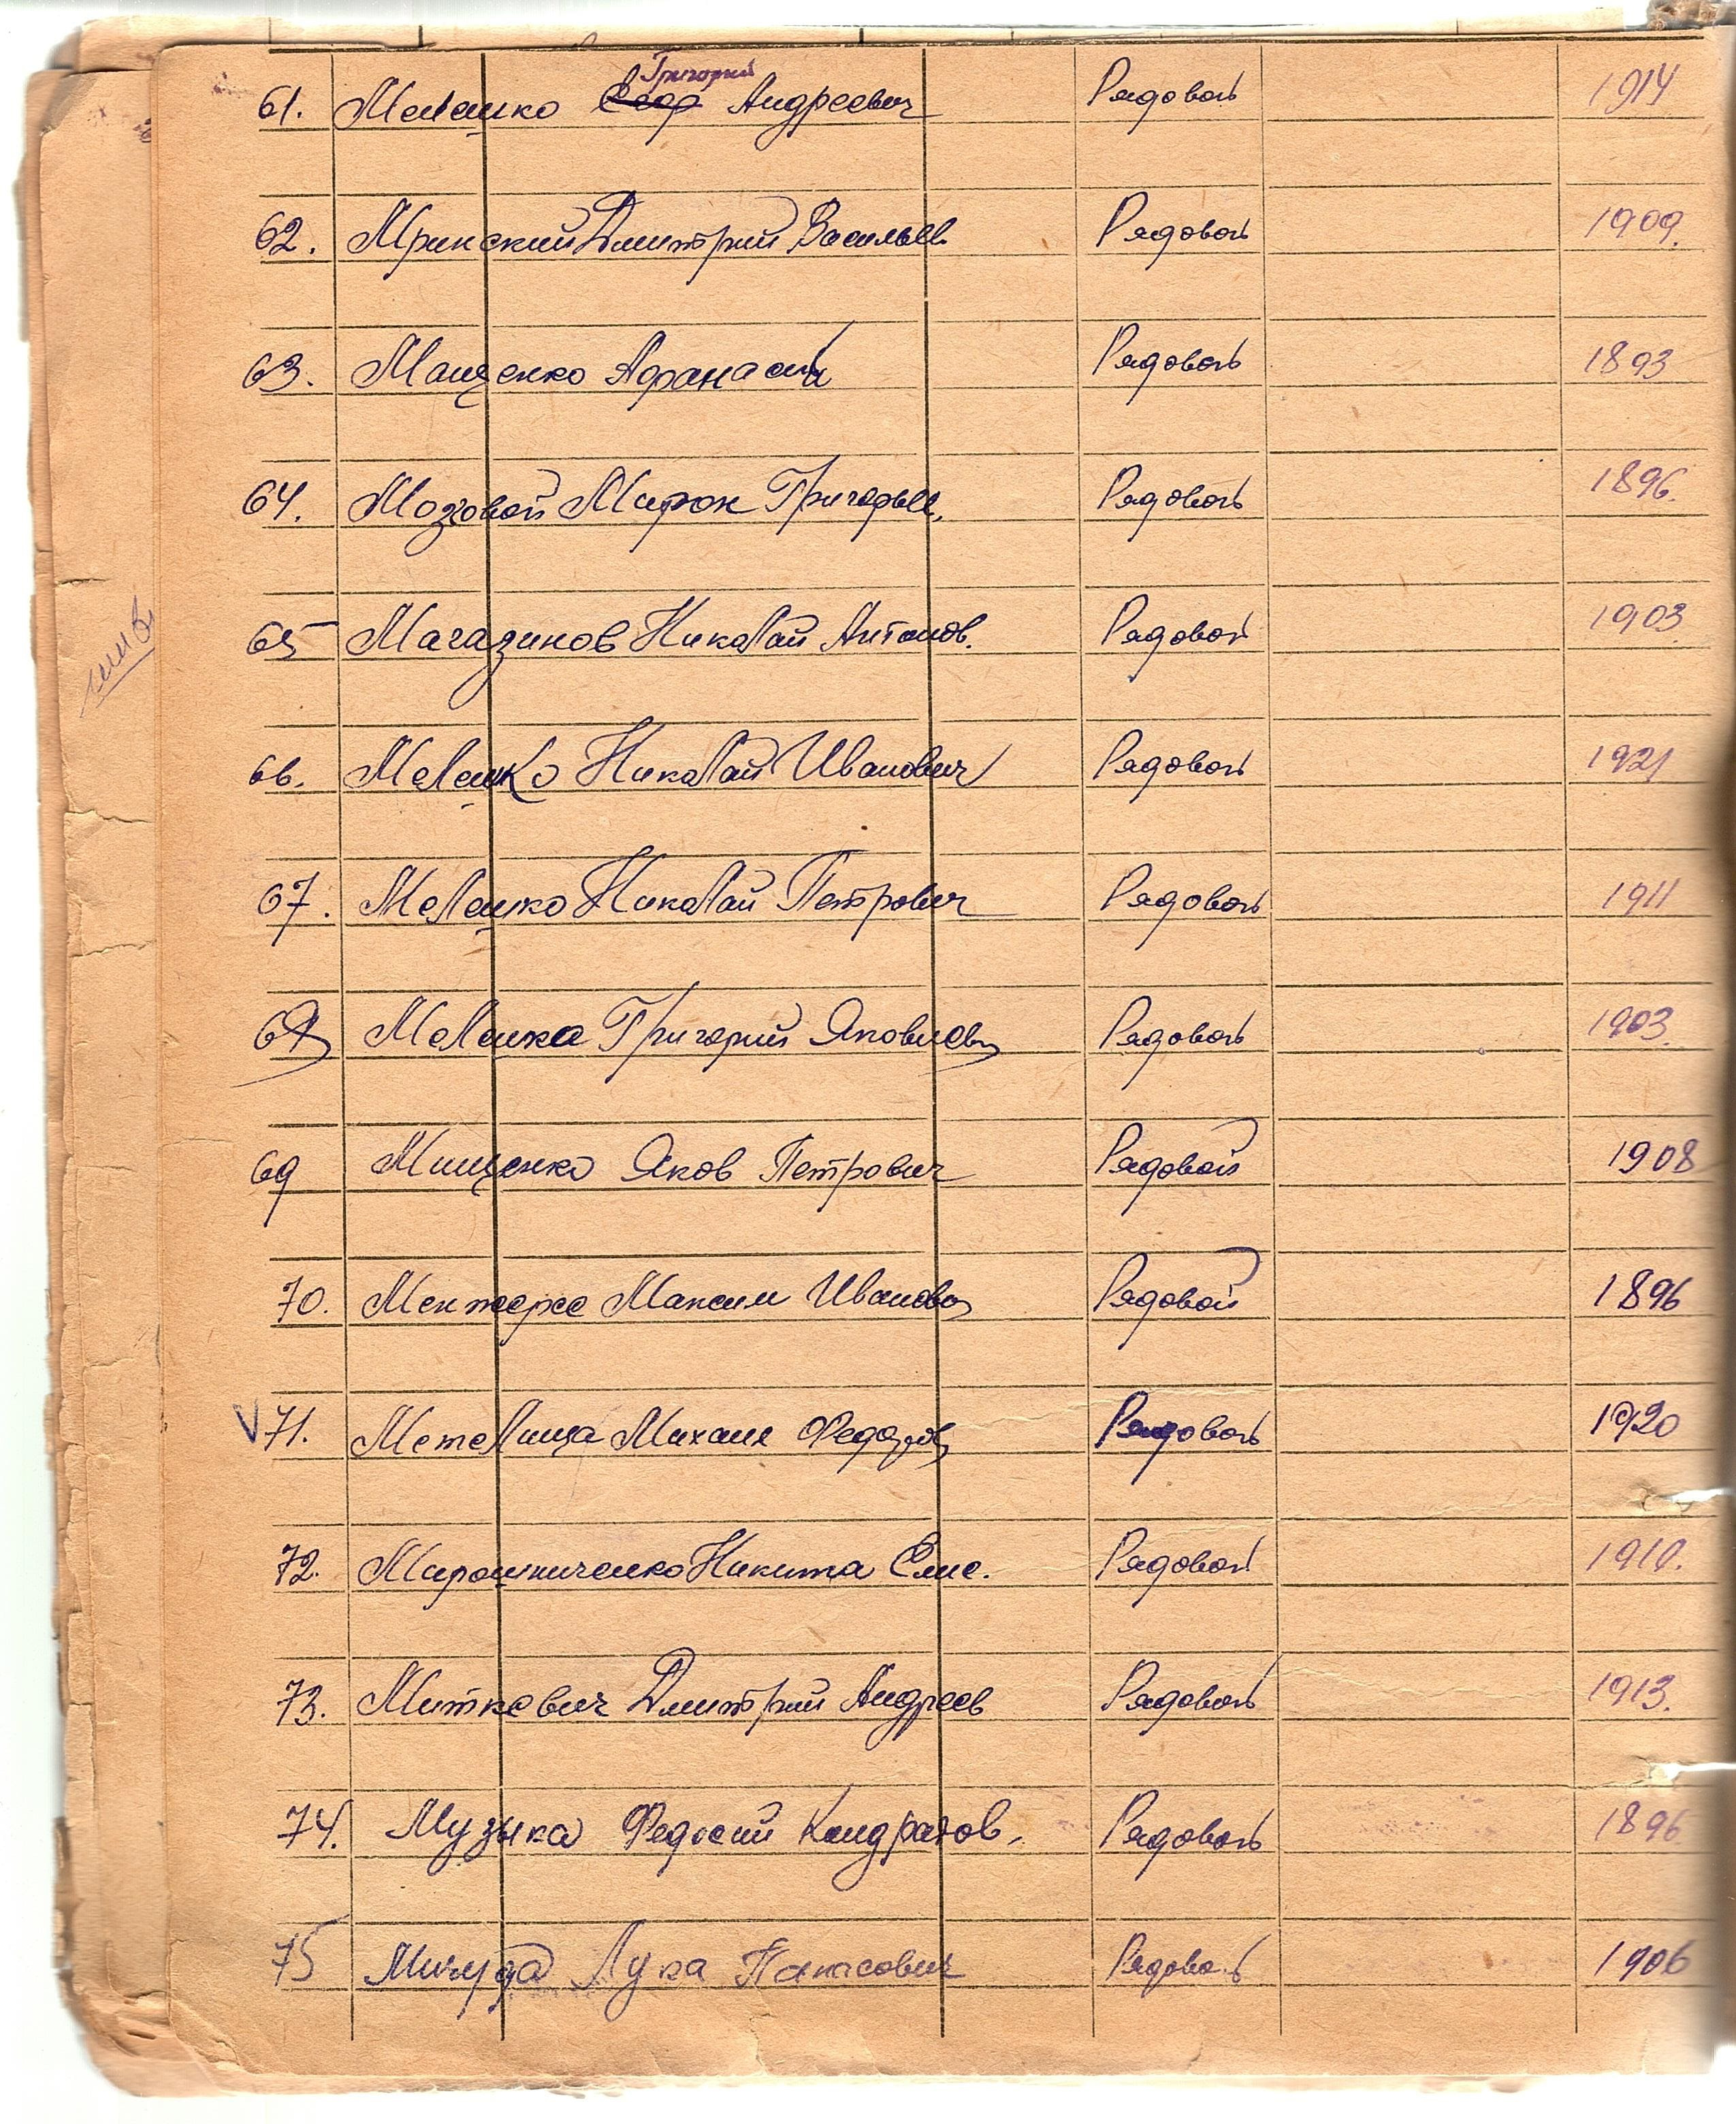 Григорий
61. Мелешко Андреевич Рядовой 1914
62. Мринский Дмитрий Васильев. Рядовой 1909.
63. Мащенко Афанасий Рядовой 1893
64. Мозговой Мирон Григорьев. Рядовой 1896.
65 Магазинов Николай Антонов. Рядовой 1903
66. Мелешко Николай Иванович Рядовой 1921
67. Мелешко Николай Петрович Рядовой 1911
68 Мелешко Григорий Яковлев Рядовой 1903.
69 Мищенко Яков Петрович Рядовой 1908
70. Максим Иванов Рядовой 1896
V 71. Метелица Михаил Федоров Рядовой 1920
72. Мирошниченко Никита Еме. Рядовой 1910.
73. Миткевич Дмитрий Андреев Рядовой 1913.
74. Музыка Федосий Кондратов. Рядовой 1896
75 Мичуда Лука Панасович Рядовой 1906